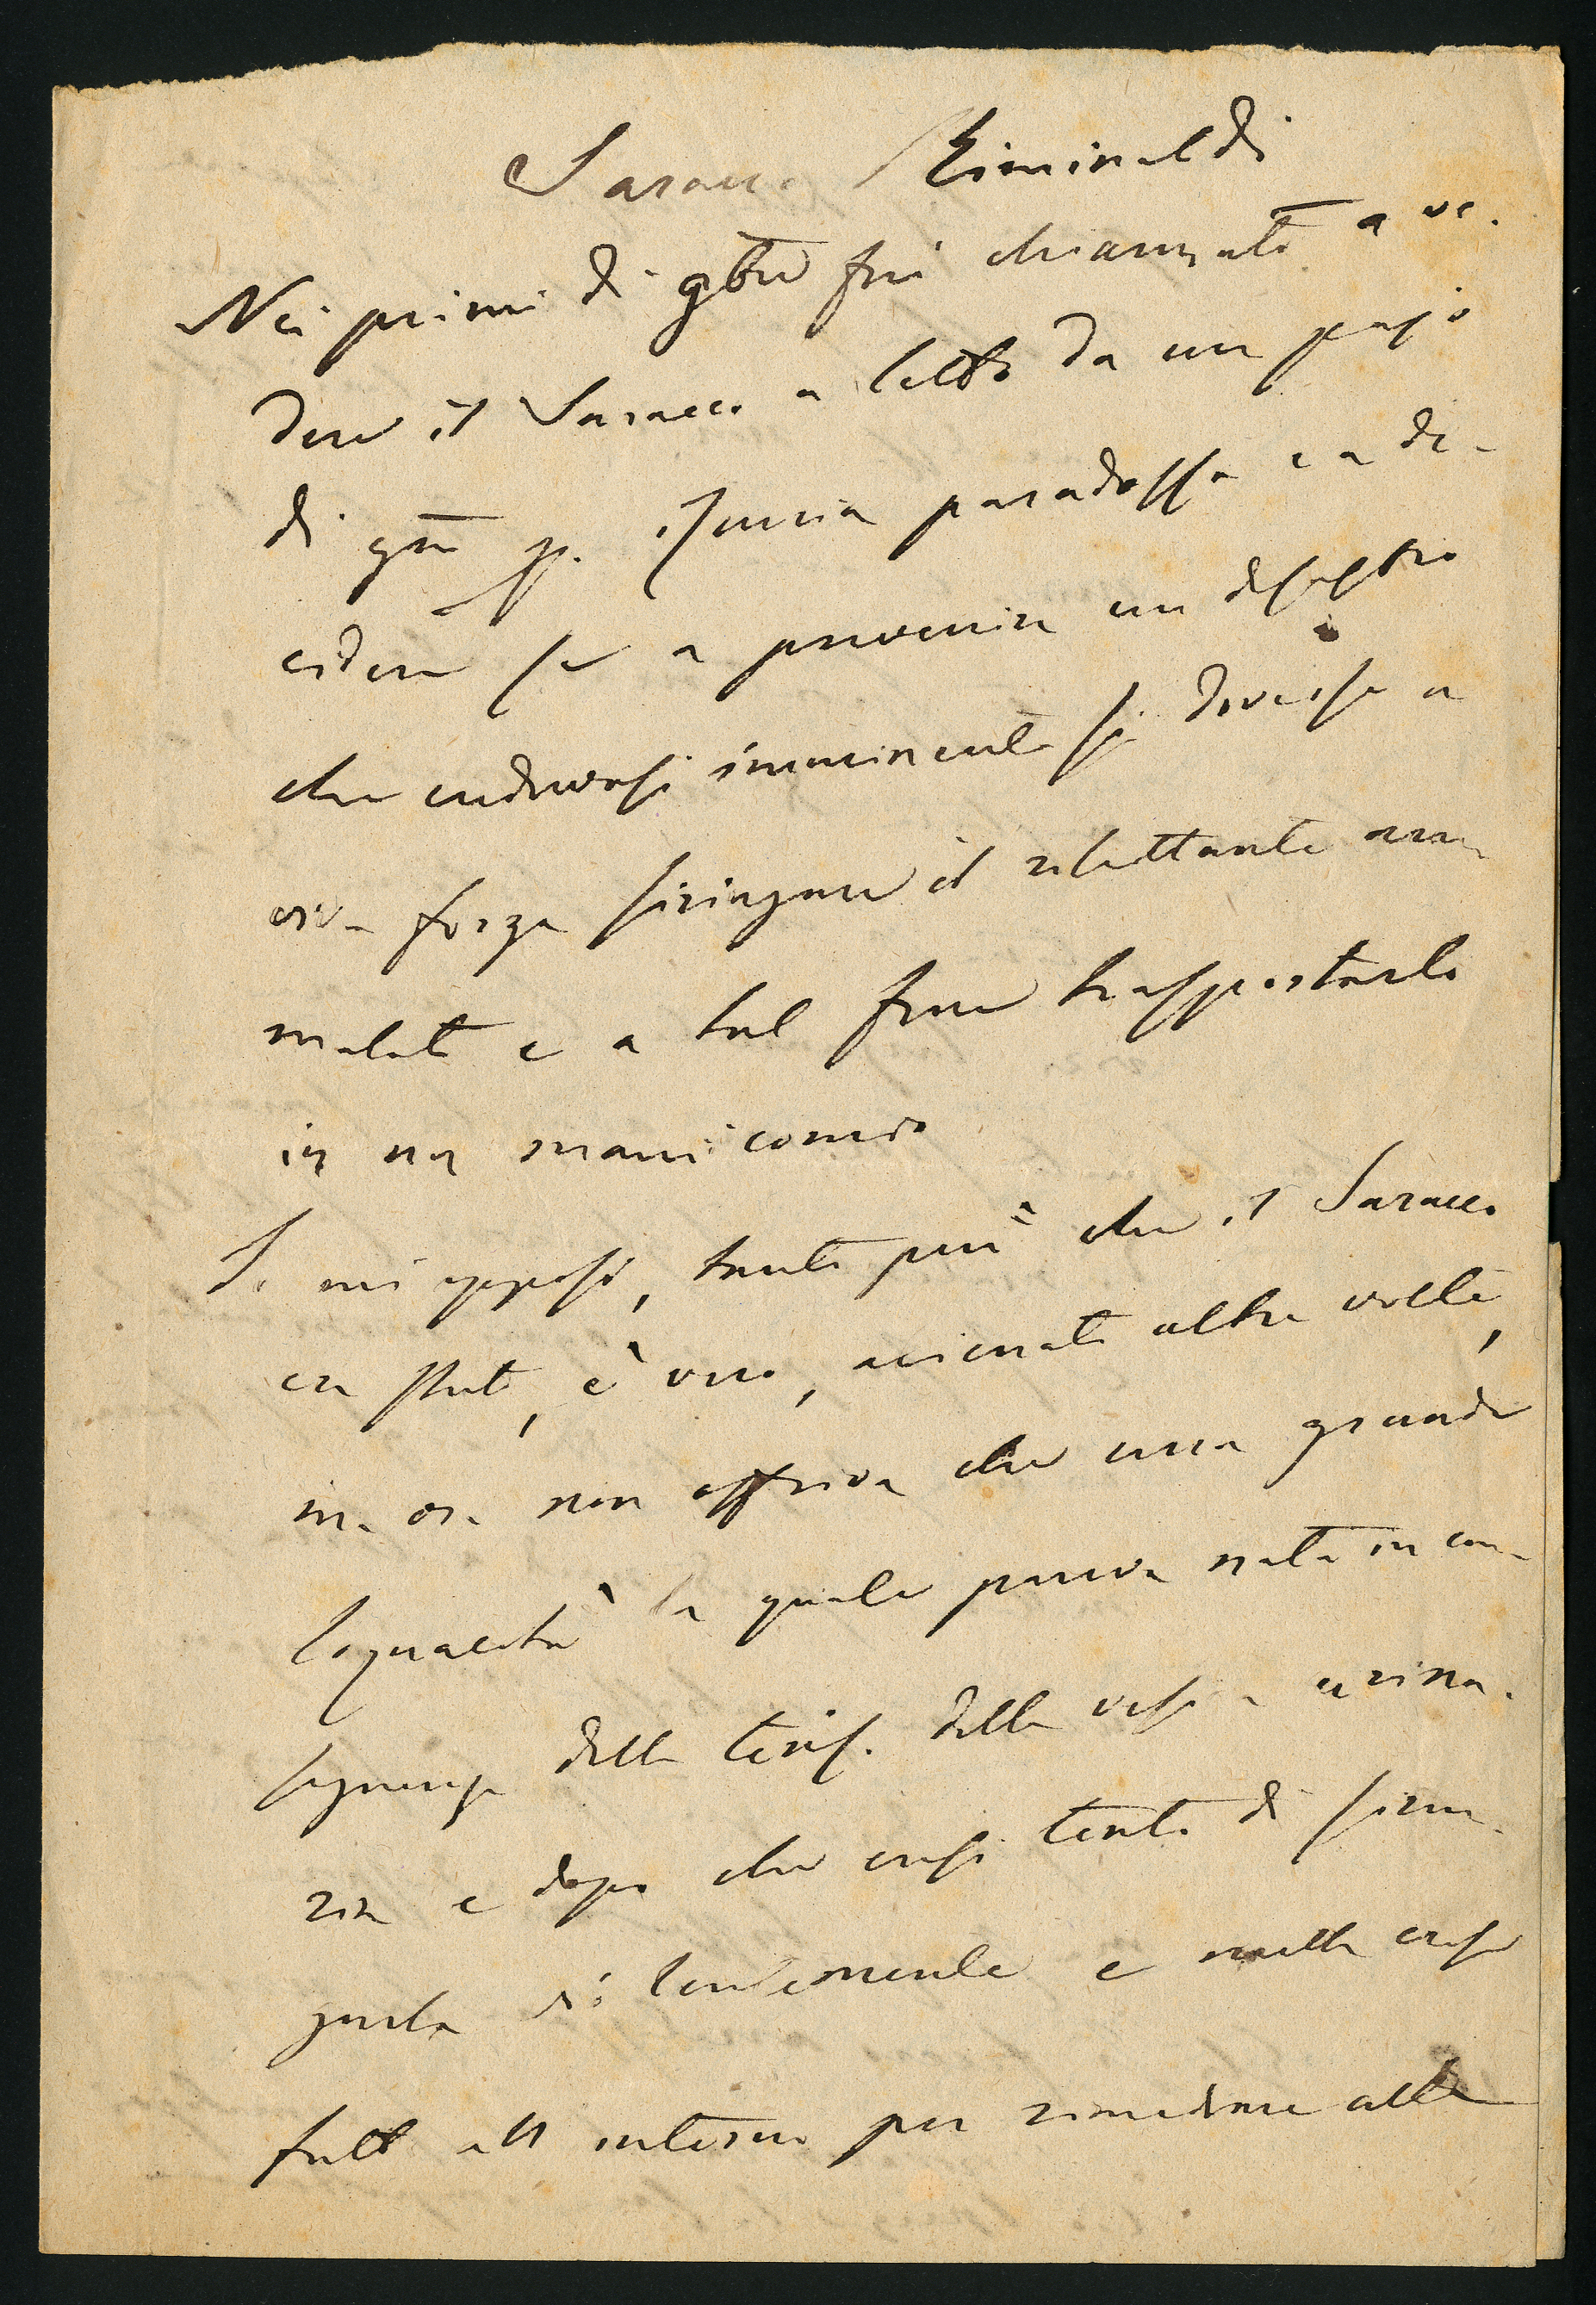 Saracco Riminaldi
Nei primi di 9bre fui chiamato a ve-
dere il Saracco a letto da un pajo
di gni p. Iscuria paradossa e a de-
cidere se a prevenire un disastro
che credevasi imminente si dovesse a
viva forza siringare il rilettante am
malato e a tal fine trasportarlo
in un manicomio
Io mi opposi, tanto più che il Saracco
era stato, è vero, alienato altre volte,
ma ora non offriva che una grande
loquacità la quale pareva nata in con-
seguenza della della vescica urina-
ria e dopo che ersi tentato di sirin-
garla violentemente e nulla ersi
fatto all interno per rimediare alla